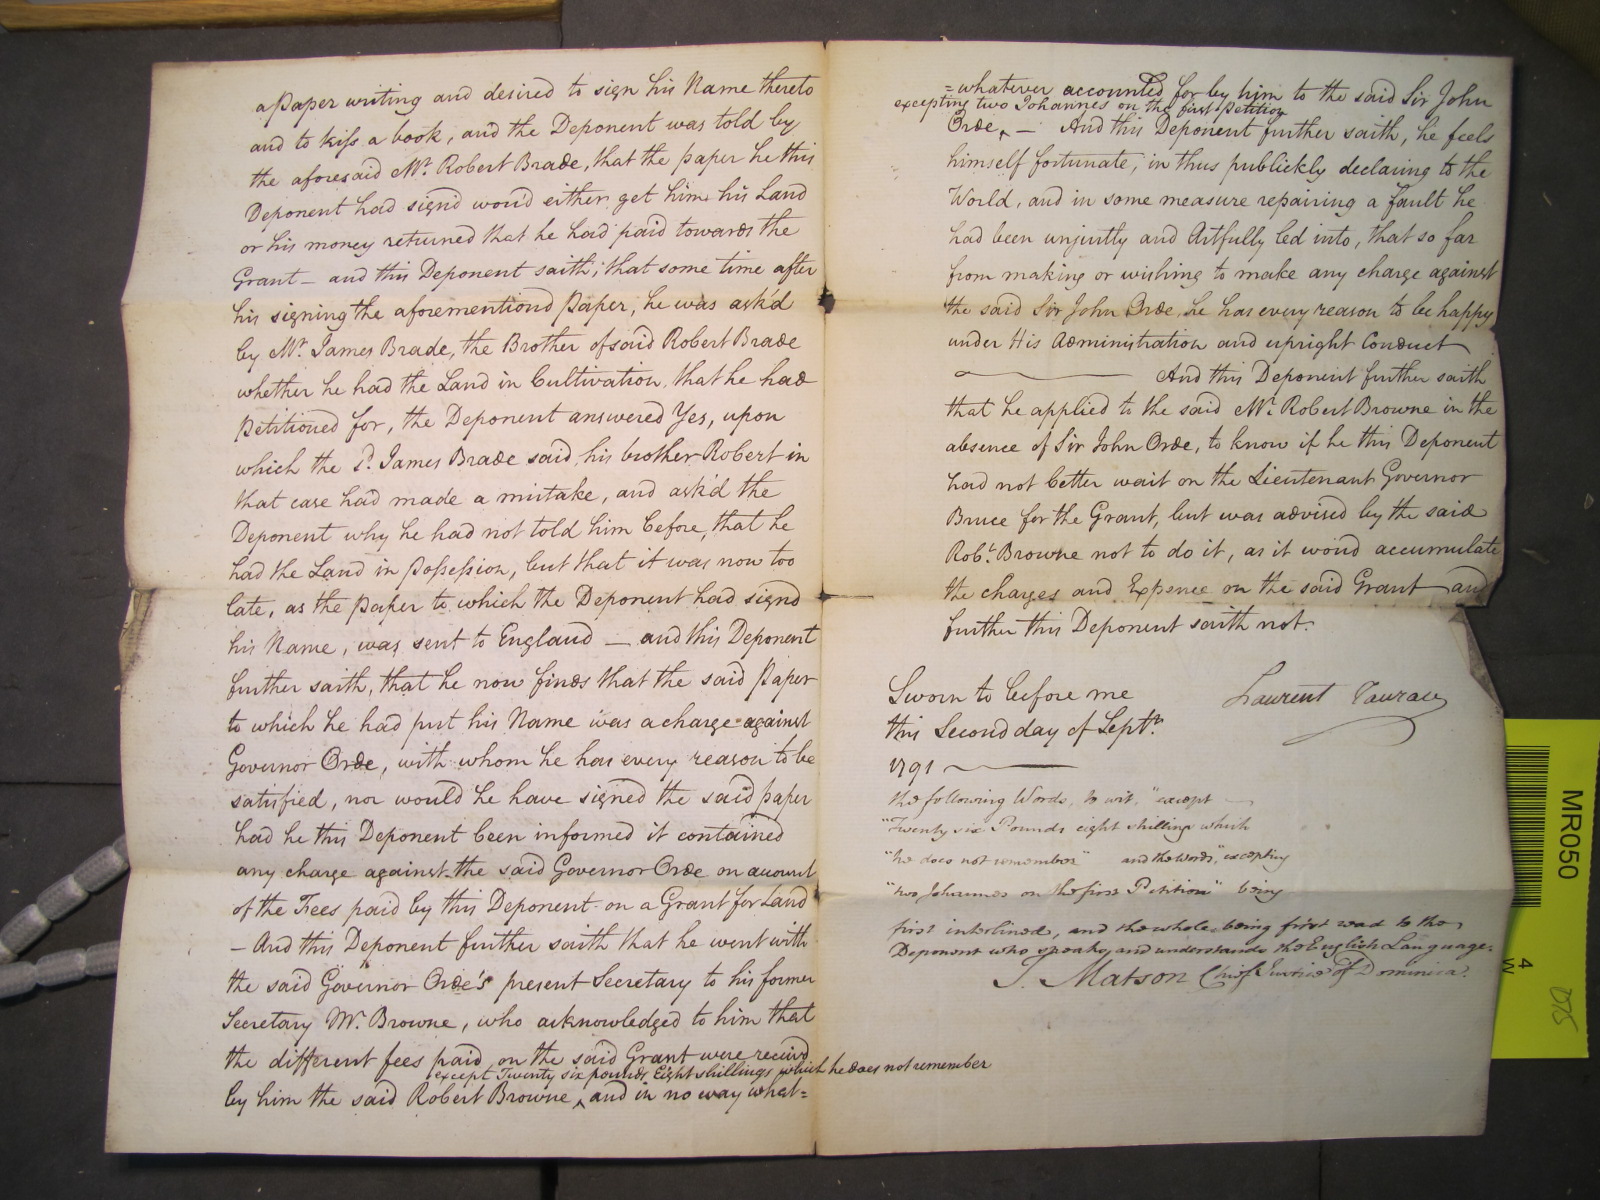 a Paper writing and desired to sign his Name thereto
and to kiss a book, and the Deponent was told by
the aforesaid Mr. Robert Brade, that the paper he this
Deponent had signd woud either get him his Land
or his money returned that he had paid towards the
Grant — and this Deponent saith, that some time after
his signing the aforementiond Paper, he was ask'd
by Mr. James Brade, the Brother of said Robert Brade
whether he had the Land in Cultivation, that he had
Petitioned for, the Deponent answered Yes, upon
which the sd. James Brade said, his brother Robert in
that case had made a mistake, and ask'd the
Deponent why he had not told him before, that he
had the Land in Possession, but that it was now too
late, as the paper to which the Deponent had signd
his Name, was sent to England — and this Deponent
further saith, that he now finds that the said Paper
to which he had put his Name was a charge against
Governor Orde, with whom he has every reason to be
satisfied, nor would he have signed the said paper
had he this Deponent been informed it contained
any charge against the said Governor Orde on account
of the Fees paid by this Deponent on a Grant for Land
— And this Deponent further saith that he went with
the said Governor Orde's present Secretary to his former
Secretary Mr. Browne, who acknowledged to him that
the different fees paid on the said Grant were receivd
except Twenty six pounds Eight shillings which he does not remember
by him the said Robert Browne ^ and in no way what=
=whatever accounted for by him to the said Sir John
excepting two Johannes on the first petition
Orde ^ — And this Deponent further saith, he feels
himself fortunate, in thus publickly declaring to the
World, and in some measure repairing a fault he
had been unjustly and Artfully led into, that so far
from making or wishing to make any charge against
the said Sir John Orde, he has every reason to be happy
under His Administration and upright Conduct
And this Deponent further saith
that he applied to the said Mr. Robert Browne in the
absence of Sir John Orde, to know if he this Deponent
had not better wait on the Lieutenant Governor
Bruce for the Grant, but was advised by the said
Robt. Browne not to do it, as it woud accumulate
the charges and Expence on the said Grant and
further this Deponent saith not.
Sworn to before me
Laurent
this Second day of Septr.
1791
the following Words, to wit, "except
"Twenty six Pounds eight shillings which
"he does not remember" and the words, "excepting
"two Johannes on the first Petition" being
first interlined, and the whole being first read to the
Deponent who speaks and understands the English Language.
T. Matson Chief Justice of Dominica.
MR050
4
W